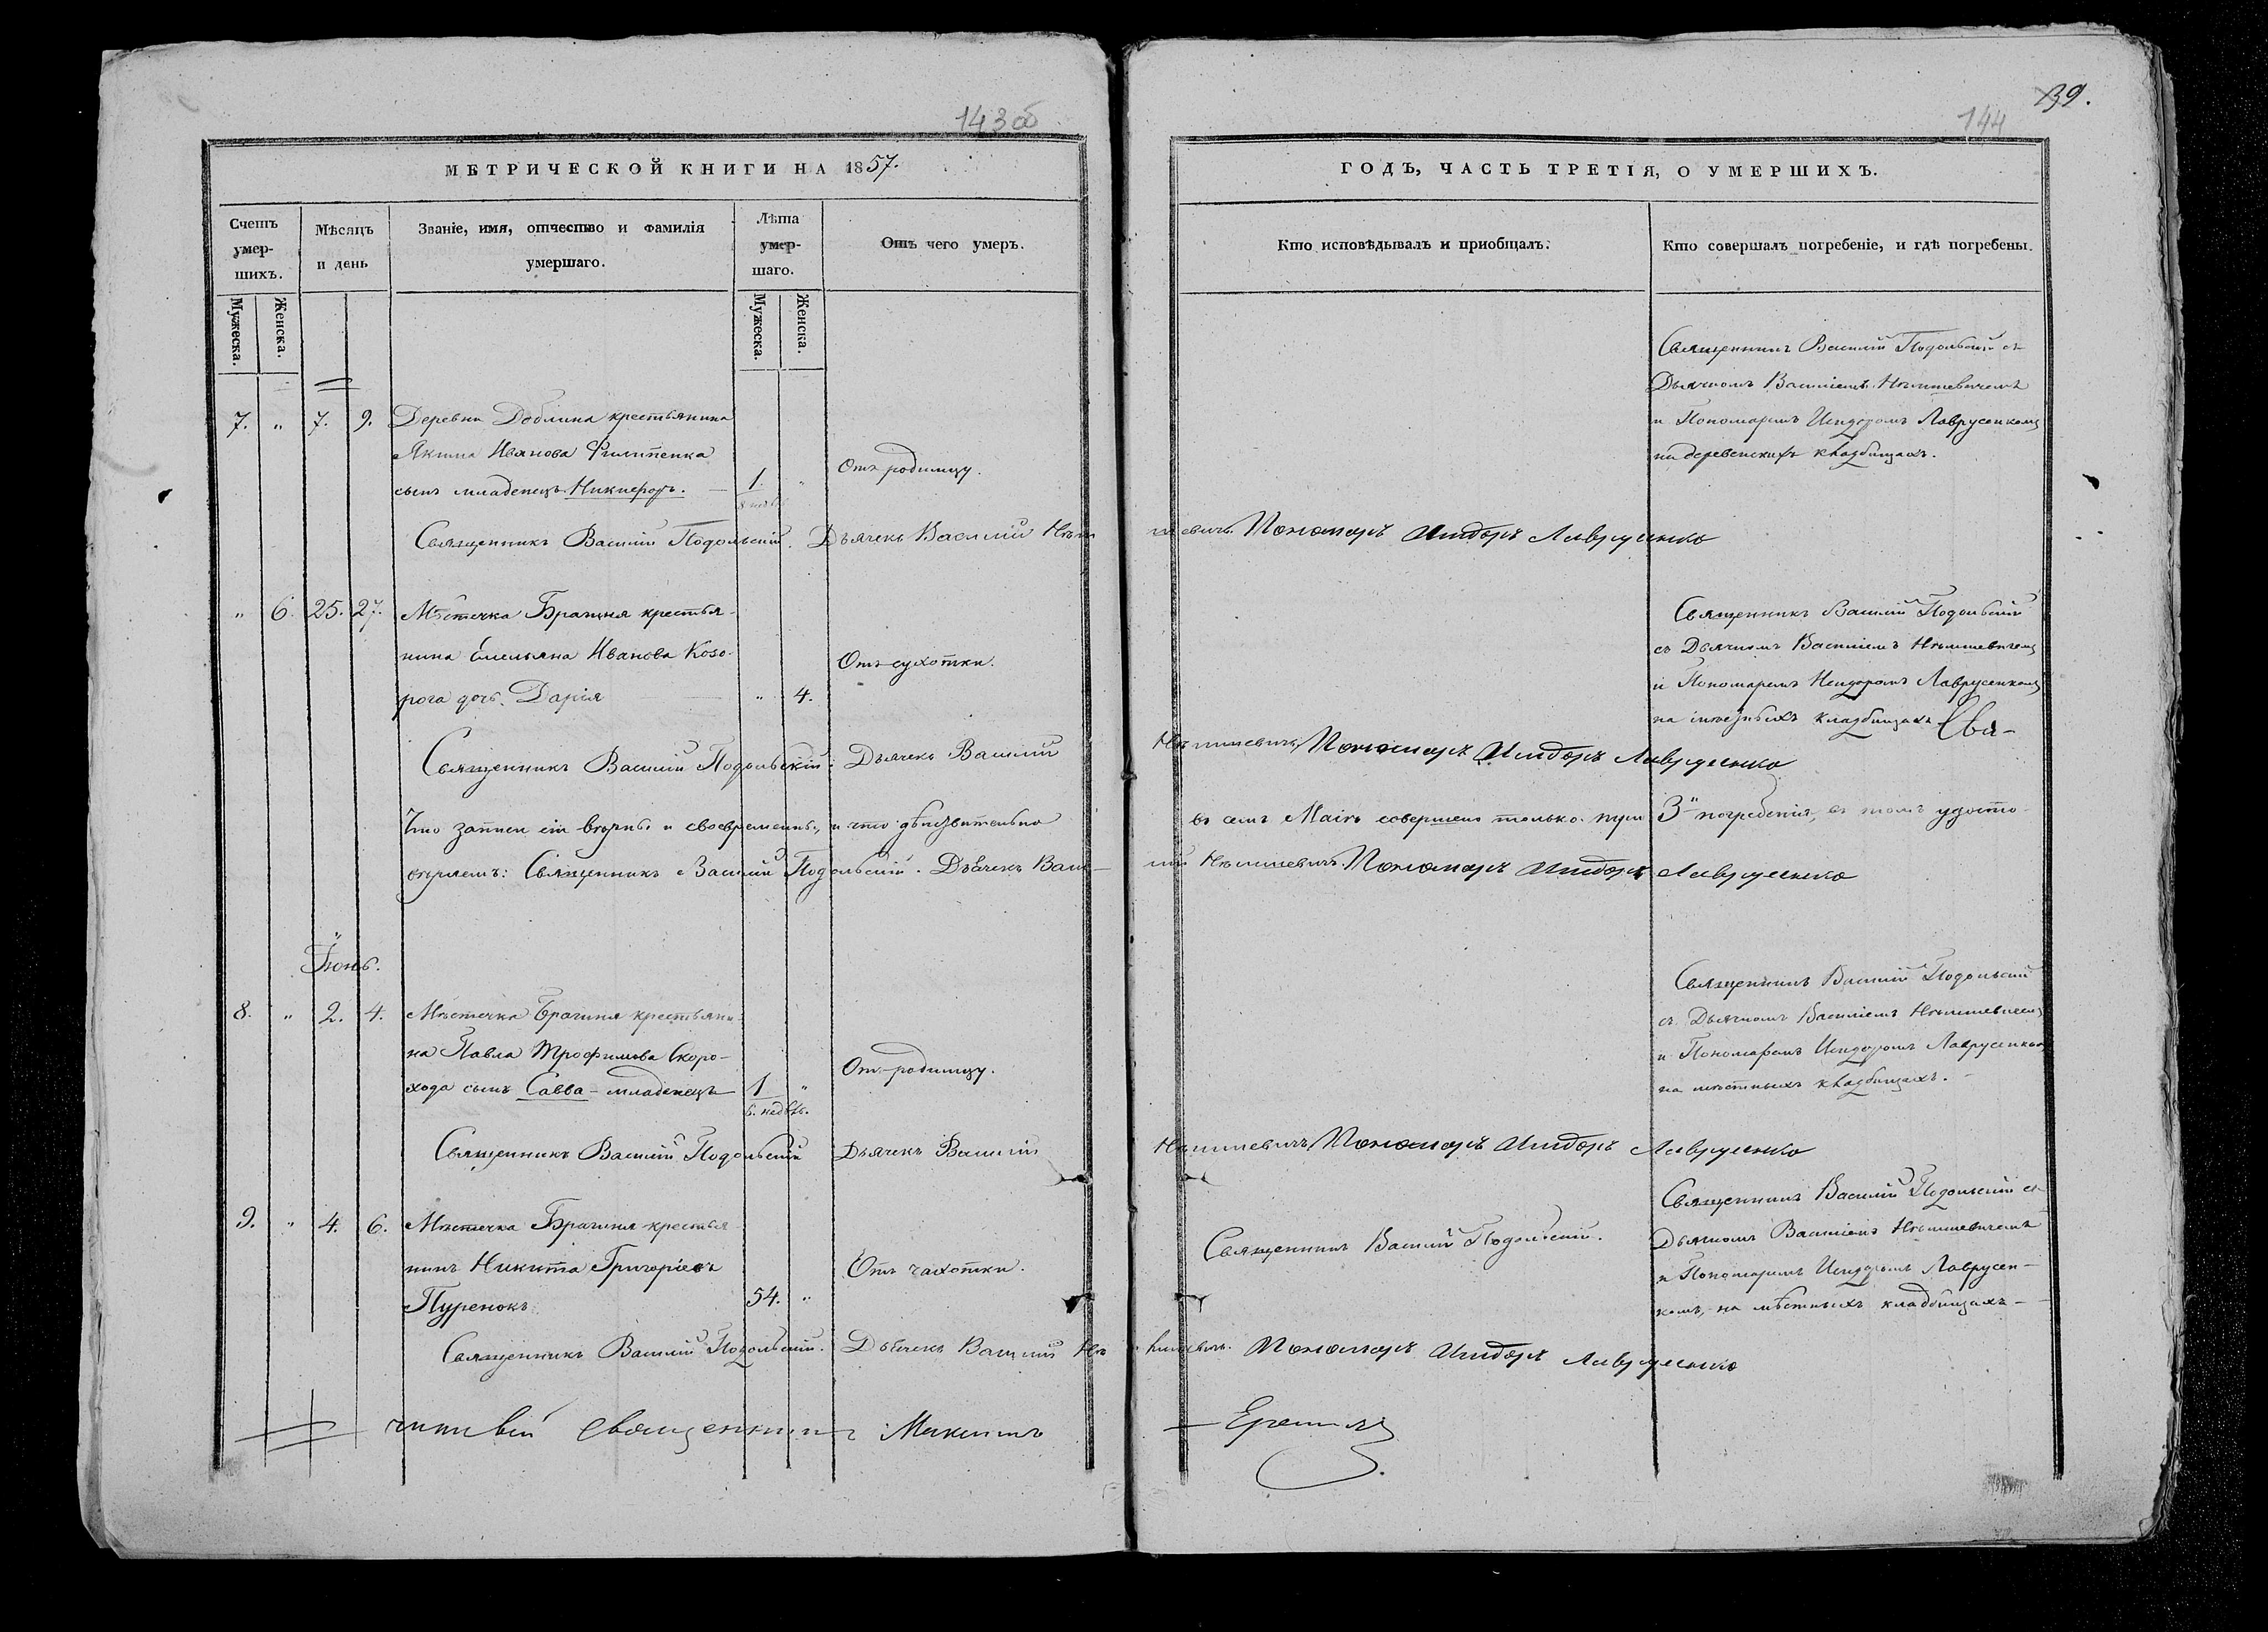 143 об
МЕТРИЧЕСКОЙ КНИГИ НА 1857.
Счетъ умер-шихъ.
Мѣсяцъ и день
Званіе, имя, отчество и фамилія умершаго.
Лѣта умер-шаго.
Отъ чего умеръ.
Мужеска.
Женска.
Мужеска.
Женска.
7. " 7. 9. Деревни Доблина крестьянина
Якима Иванова Филипенка
сынъ младенецъ Никифоръ. — 1. "
Отъ родимцу.
Священникъ Василій Подольскій. Дьячекъ Василій Нѣм
" 6. 25. 27. Мѣстечка Брагиня крестья-
нина Емельяна Иванова Козо-
рога дочь Дарія " 4.
Отъ сухотки.
Священникъ Василій Подольскій. Дьячекъ Василій
Что записи сіи вѣрны и своевременны, и что дѣйствительно
вѣряемъ: Священникъ Василій Подольскій. Дьячекъ Васи-
Іюнь.
8. " 2. 4. Мѣстечка Брагиня крестьяни-
на Павла Трофимова Скоро-
хода сынъ Савва - младенецъ 1 "
6. недѣль.
Отъ родимцу.
Священникъ Василій Подольскій Дьячекъ Василій
9. " 4. 6. Мѣстечка Брагиня крестья-
нинъ Никита Григоріевъ
Пуренокъ 54. "
Отъ чахотки.
Священникъ Василій Подольскій. Дьячекъ Василій Нѣ
священникъ Максимъ
39.
144
ГОДЪ, ЧАСТЬ ТРЕТІЯ, О УМЕРШИХЪ.
Кто исповѣдывалъ и пріобщалъ.
Кто совершалъ погребеніе, и гдѣ погребены.
Священникъ Василій Подольскій съ
Дьячкомъ Василіемъ Нѣмшевичемъ
и Пономаремъ Исидоромъ Лаврусенкомъ
на деревенскихъ кладбищахъ.
шевичъ. Пономарь Исидоръ Лаврусенко
Священникъ Василій Подольскій
съ Дьячкомъ Василіемъ Нѣмшевичемъ
и Пономаремъ Исидоромъ Лаврусенкомъ
на кладбищахъ Свя-
Нѣмшевичъ Пономарь Исидоръ Лаврусенко
въ семъ Маіѣ совершено только три 3 погребенія, въ томъ удосто-
лій Нѣмшевичъ. Пономарь Исидоръ Лаврусенко
Священникъ Василій Подольскій
съ Дьячкомъ Василіемъ Нѣмшевичемъ
и Пономаремъ Исидоромъ Лаврусенкомъ
на мѣстныхъ кладбищахъ.
Нѣмшевичъ Пономарь Исидоръ Лаврусенко
Священникъ Василій Подольскій.
Священникъ Василій Подольскій съ
Дьячкомъ Василіемъ Нѣмшевичемъ
и Пономаремъ Исидоромъ Лаврусен-
комъ, на мѣстныхъ кладбищахъ -
Пономарь Исидоръ Лаврусенко